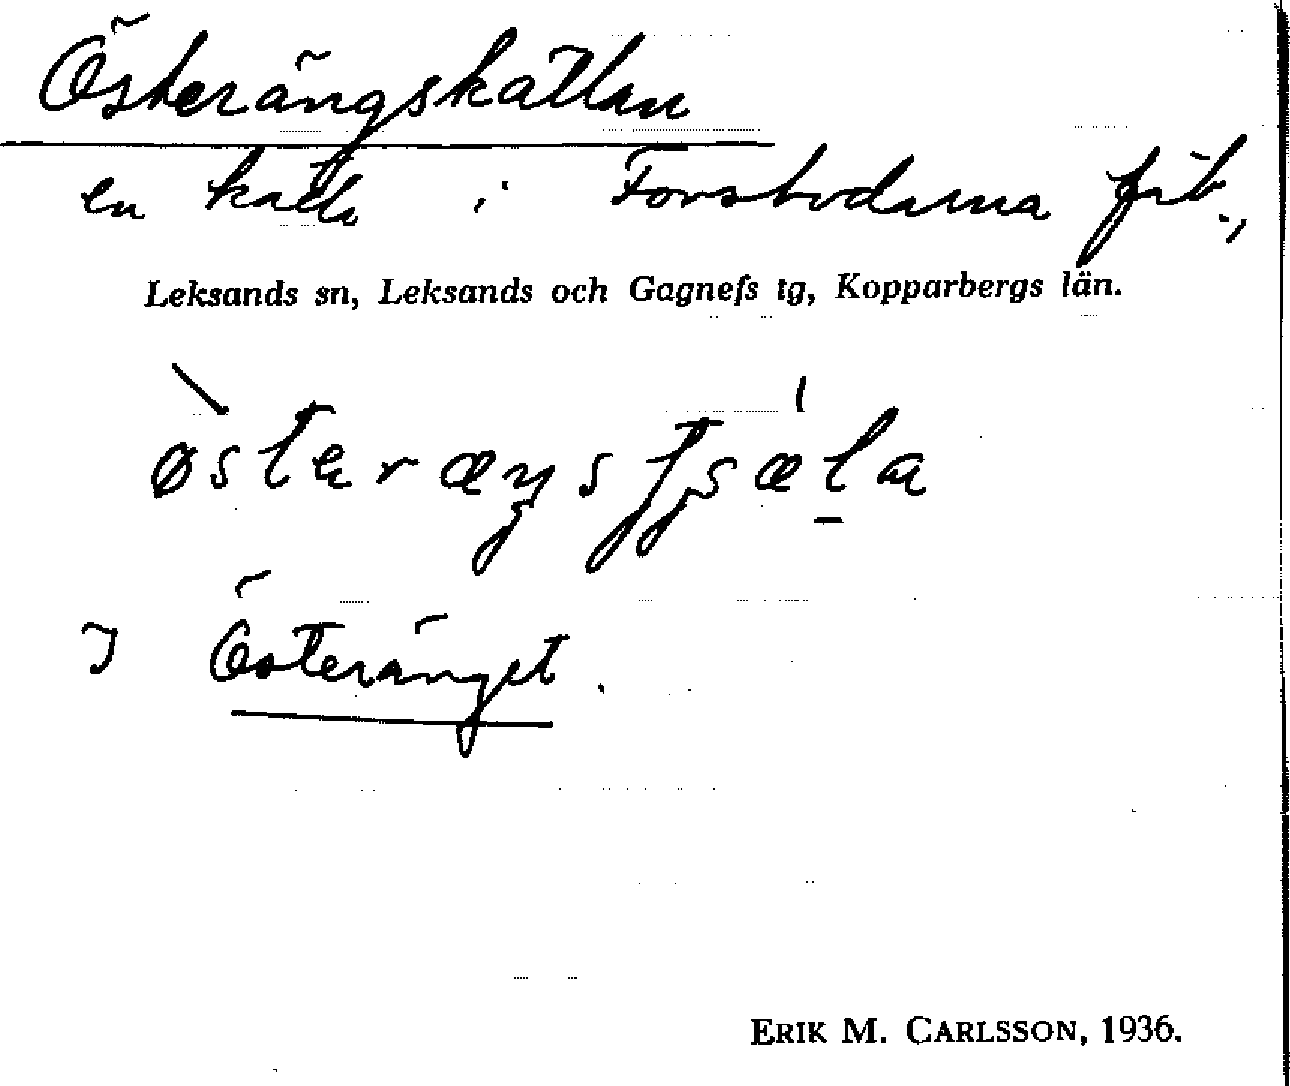 Österängskällan
en källa i Forsbodarna fäb.,
Leksands sn, Leksands och Gagnefs tg, Kopparbergs län.
I Österänget.
ERIK M. CARLSSON, 1936.